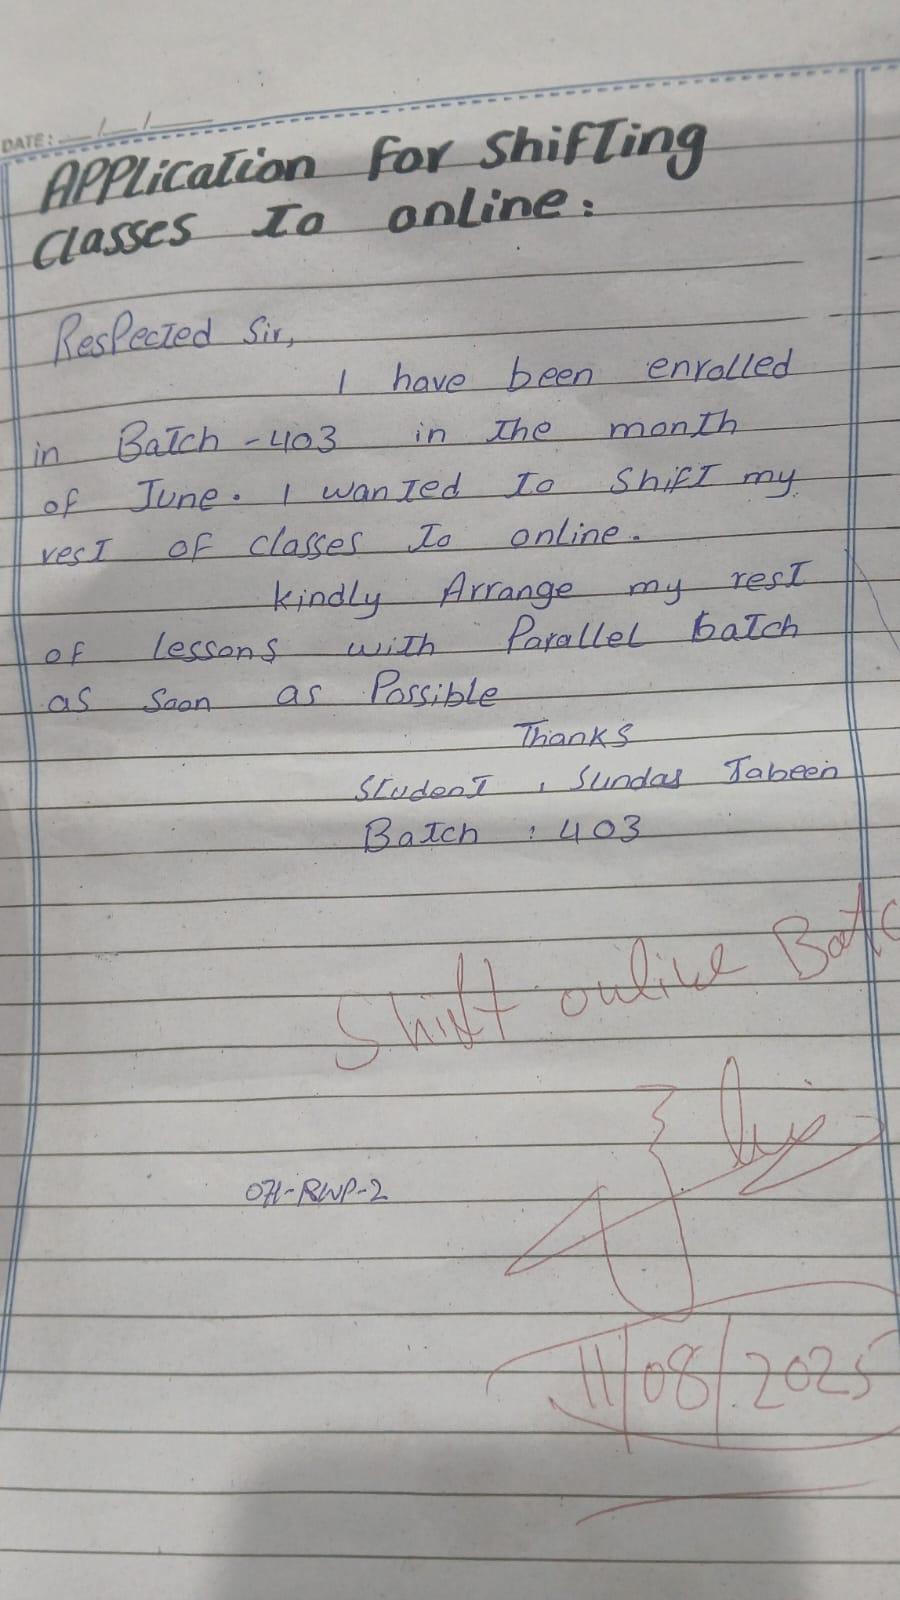 DATE: / /
Application For Shifting
Classes To online:
Respected Sir,
I have been enrolled
in Batch -403 in the month
of June. I wanted to Shift my
rest of classes to online.
kindly Arrange my rest
of lessons with Parallel batch
as soon as Possible
Thanks
Student : Sundas Jabeen
Batch : 403
Shift online Batc
071-RWP-2
11/08/2025